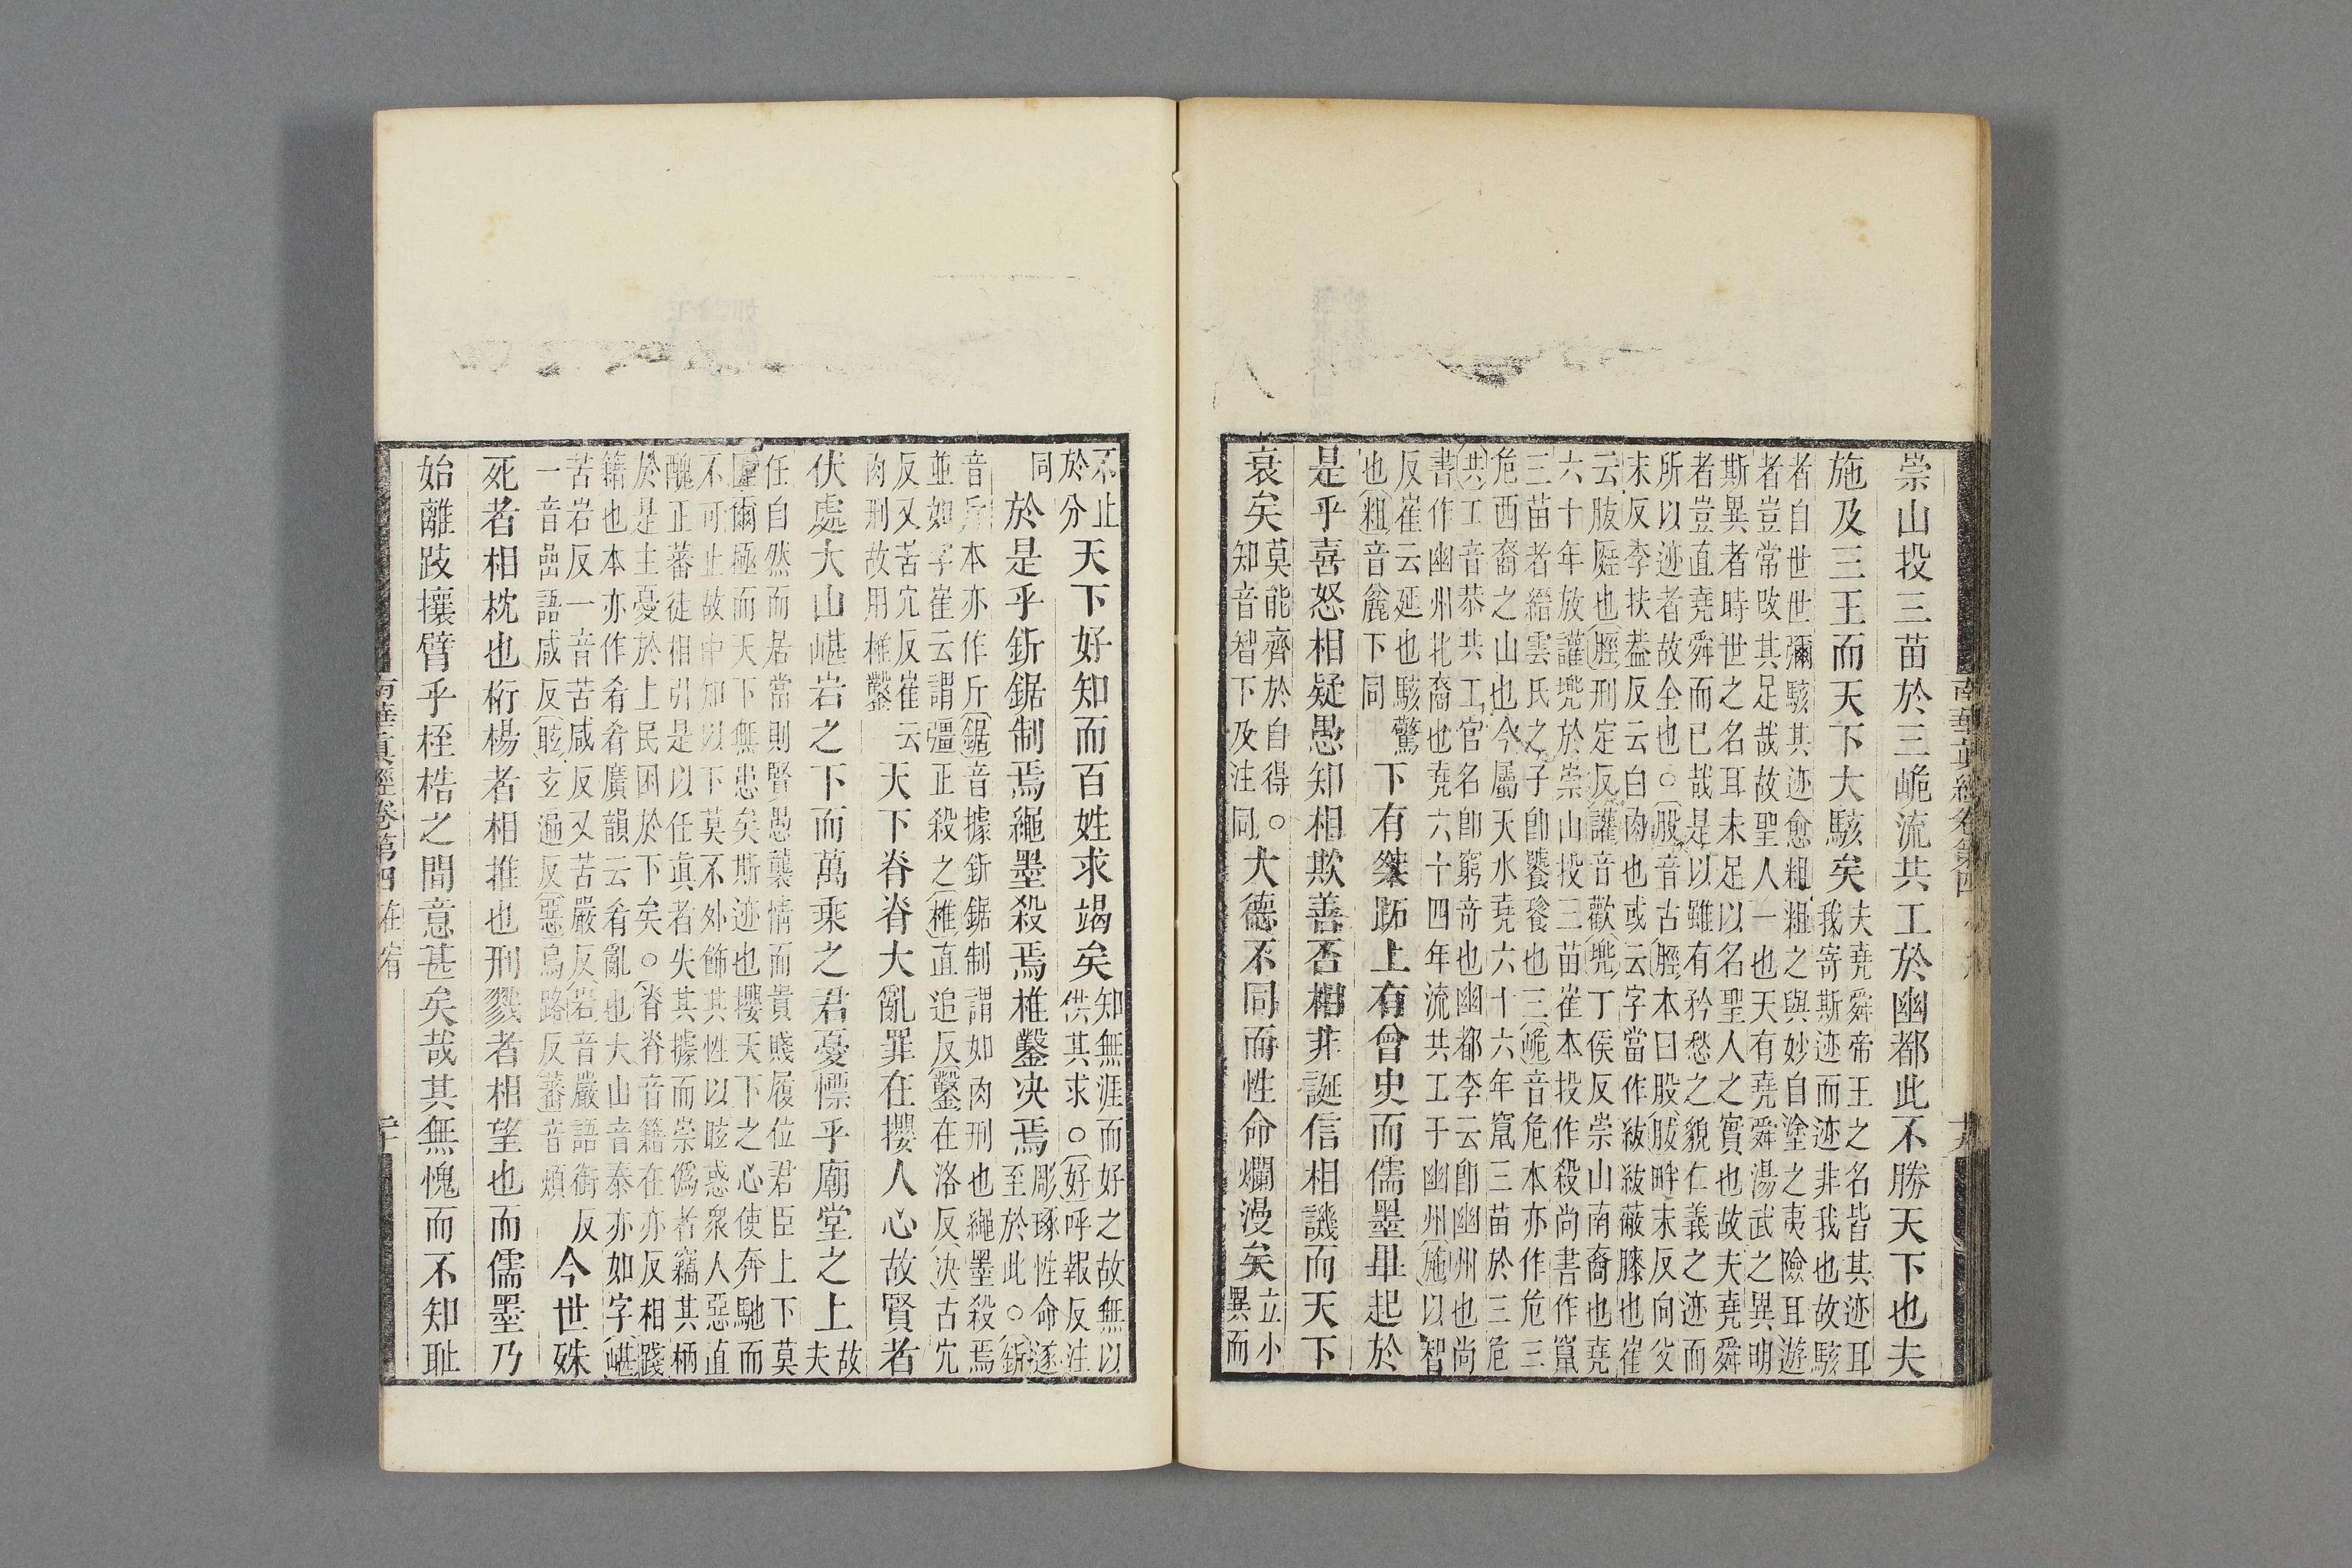 崇山投三苗於三峗流共工於幽都此不勝天下也夫
施及三王而天下大駭矣夫堯舜帝王之名皆其迹耳
我寄斯迹而迹非我也故駭
者自世世彌駭其迹愈粗粗之與妙自塗之夷險耳遊
者豈常攺其足哉故聖人一也天有堯舜湯武之異明
斯異者時世之名耳未足以名聖人之實也故夫堯舜
者豈直堯舜而已哉是以雖有矜愁之貌仁義之迹而
所以迹者故全也○股音古脛本曰股胈畔末反向父
末反李扶葢反云白肉也或云字當作紱紱蔽膝也崔
云胈𡲬也脛刑定反讙音歡兠丁侯反崇山南裔也堯
六十年放讙兠於崇山投三苗崔本投作殺尚書作竄
三苗者縉雲氏之子卽饕餮也三峗音危本亦作危三
危西裔之山也今屬天水堯六十六年竄三苗於三危
共工音恭共工官名卽窮竒也幽都李云卽幽州也尚
書作幽州北裔也堯六十四年流共工于幽州施以智
反崔云延也駭驚
也粗音麄下同
下有桀跖上有曾史而儒墨畢起於
是乎喜怒相疑愚知相欺善否相非誕信相譏而天下
衰矣莫能齊於自得○
知音智下及注同
大德不同而性命爛漫矣立小
異而
不止
於分
天下好知而百姓求竭矣知無涯而好之故無以
供其求○好呼報反注
同
於是乎釿鋸制焉繩墨殺焉椎鑿决焉彫琢性命遂
至於此○釿
音斤本亦作斤鋸音據釿鋸制謂如肉刑也繩墨殺焉
並如字崔云謂彊正殺之椎直追反鑿在洛反决古穴
反又苦穴反崔云
肉刑故用椎鑿
天下脊脊大亂罪在攖人心故賢者
伏處大山嵁岩之下而萬乘之君憂慄乎廟堂之上故
夫
任自然而居當則賢愚襲情而貴賤履位君臣上下莫
匪爾極而天下無患矣斯迹也攖天下之心使奔馳而
不可止故中知以下莫不外飾其性以眩惑衆人惡直
醜正蕃徒相引是以任真者失其據而崇僞者竊其柄
於是主憂於上民困於下矣○脊脊音籍在亦反相踐
籍也本亦作肴肴廣韻云肴亂也大山音泰亦如字嵁
苦岩反一音苦咸反又苦嚴反岩音嚴語銜反
一音嵒語咸反眩玄遍反惡烏路反蕃音煩
今世殊
死者相枕也桁楊者相推也刑戮者相望也而儒墨乃
始離跂攘臂乎桎梏之間意甚矣哉其無愧而不知耻
南華真經卷第四 在宥
二十
南華真經卷第四